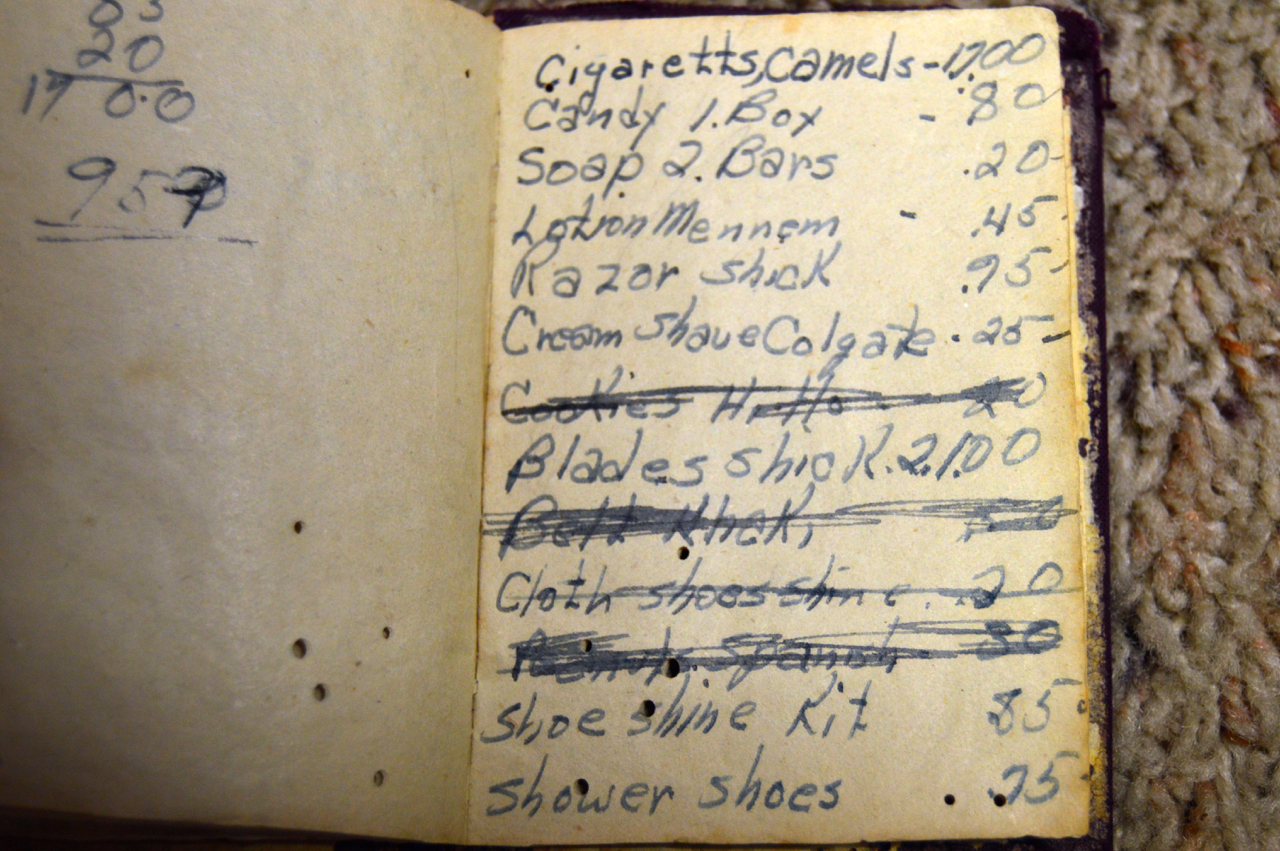 20
17 00
957
Cigaretts, Camels - 17.00
Candy 1. Box - .80
Soap 2. Bars .20
Lotion Mennem - .45
Razor shick .95
Cream shave Colgate .25
Cookies
Blades shick. 2. 1.00
Belt
Cloth shoes shine . .20
Spanish 30
shoe shine Kit 85
shower shoes .75